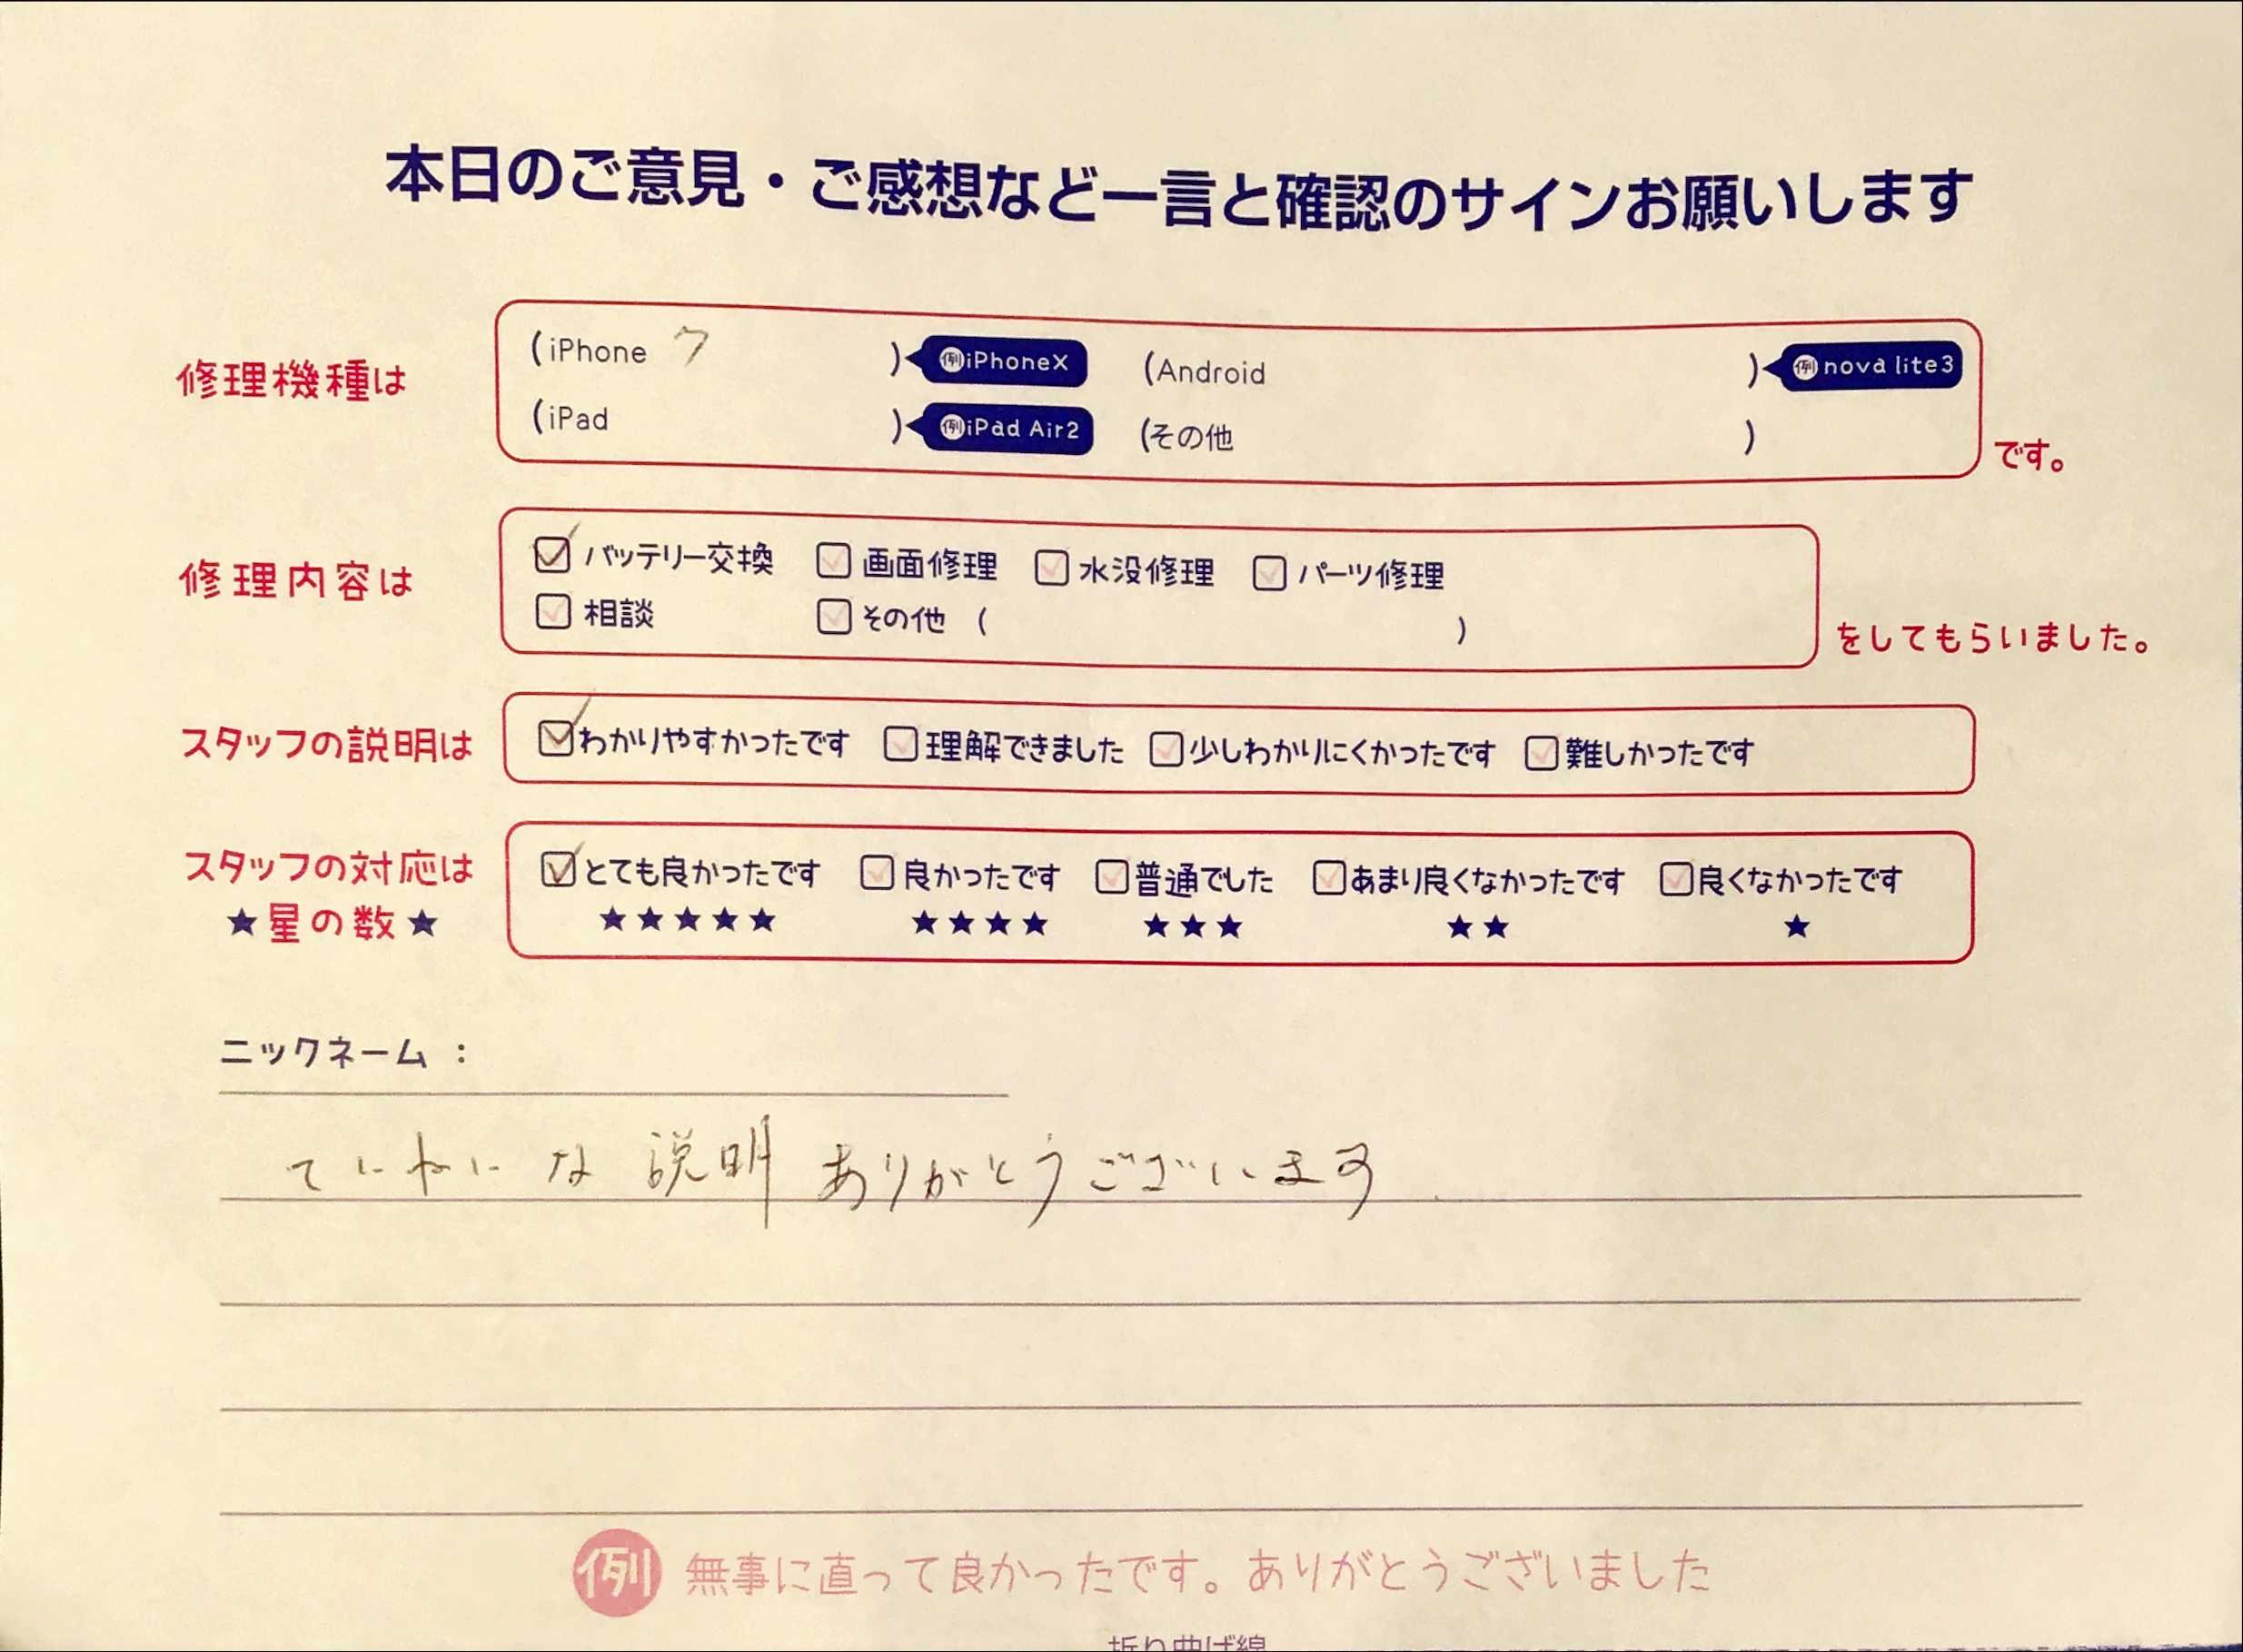 本日のご意見・ご感想など一言と確認のサインお願いします
修理機種は (iPhone 7 ) 例iPhoneX (Android ) 例nova lite3
(iPad ) 例iPad Air2 (その他 ) です。
修理内容は ☑バッテリー交換 ☐画面修理 ☐水没修理 ☐パーツ修理
☐相談 ☐その他 ( ) をしてもらいました。
スタッフの説明は ☑わかりやすかったです ☐理解できました ☐少しわかりにくかったです ☐難しかったです
スタッフの対応は ☑とても良かったです ☐良かったです ☐普通でした ☐あまり良くなかったです ☐良くなかったです
★星の数★ ★★★★★ ★★★★ ★★★ ★★ ★
ニックネーム：
ていねいな 説明 ありがとうございます
例 無事に直って良かったです。ありがとうございました
折り曲げ線